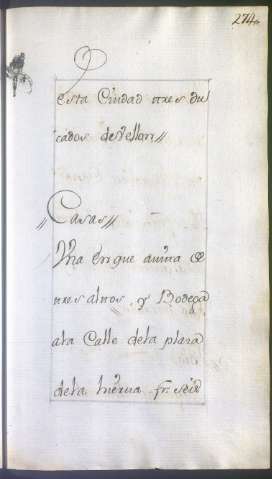 274
esta Ciudad tres du
cados de Vellon//
//Casas//
Una en que avita
tres altos y Bodega
ala Calle dela plaza
dela hierva